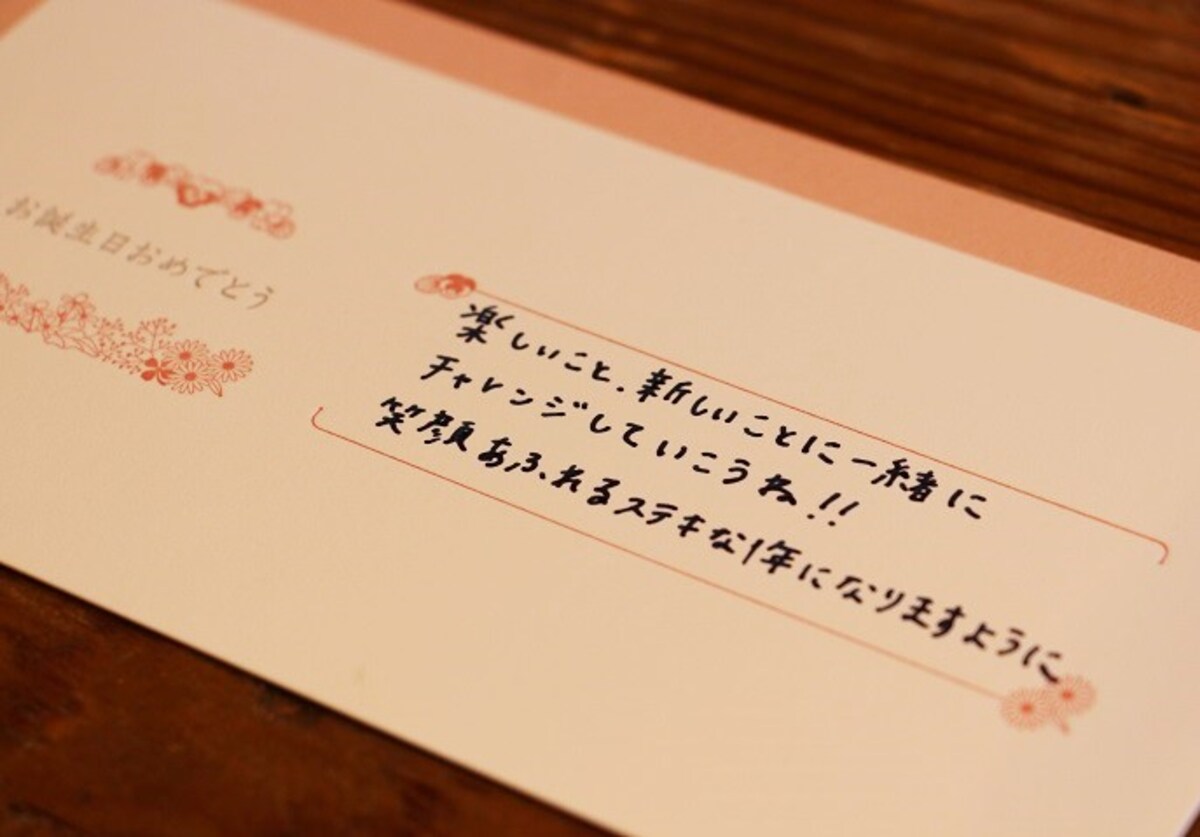 お誕生日おめでとう
楽しいこと、新しいことに一緒に
チャレンジしていこうね!!
笑顔あふれるステキな1年になりますように